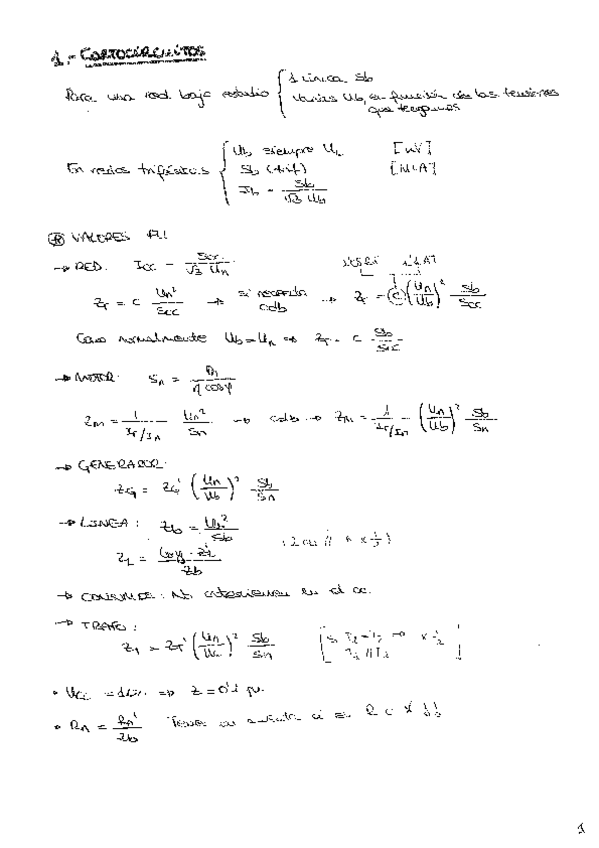 1.- CORTOCIRCUITOS
Para una red bajo estudio { 1 única Sb
varias Ub, en función de las tensiones
que tengamos
En redes trifásicas { Ub siempre UL [kV]
Sb (trif) [MVA]
Ib = Sb / √3 Ub
⊛ VALORES P.U.
→ RED: Icc = Scc / √3 Un
Zr = c Un² / Scc → si necesita cdb → Zr = c (Un/Ub)² Sb/Scc
Como normalmente Ub = Un ⇒ Zr = c Sb/Scc
→ MOTOR: Sn = Pn / η cosφ
ZM = 1/(Ir/In) Un²/Sn → cdb → ZM = 1/(Ir/In) (Un/Ub)² Sb/Sn
→ GENERADOR:
ZG = ZG' (Un/Ub)² Sb/Sn
→ LINEA: Zb = Ub²/Sb
ZL = Long · ZL' / Zb
→ CONSUMOS: No intervienen en el cc.
→ TRAFO:
ZT = ZT' (Un/Ub)² Sb/Sn